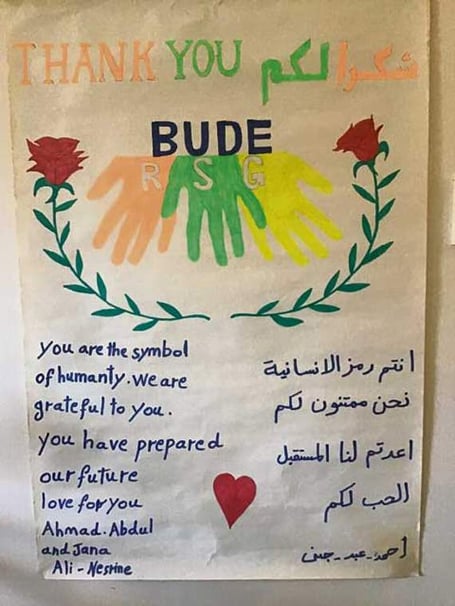 THANK YOU شكرا لكم
BUDE
R S G
you are the symbol
of humanty. we are
grateful to you.
you have prepared
our future
love for you
Ahmad. Abdul
and Jana
Ali - Nesrine
انتم رمز الانسانية
نحن ممتنون لكم
اعدتم لنا المستقبل
الحب لكم
احمد - عبد - جنى